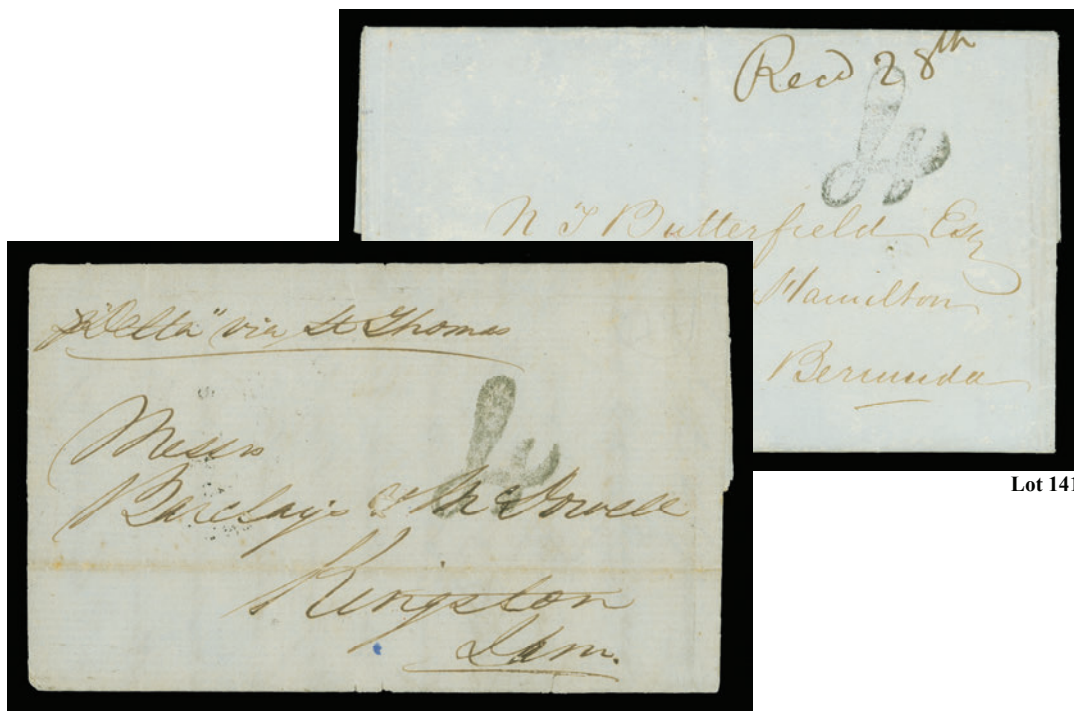 Recd 28th
4
N T Butterfield Esq
Hamilton
Bermuda
Lot 141
p "Delta" via St Thomas
4
Messrs
Barclay & McDowell
Kingston
Jam.